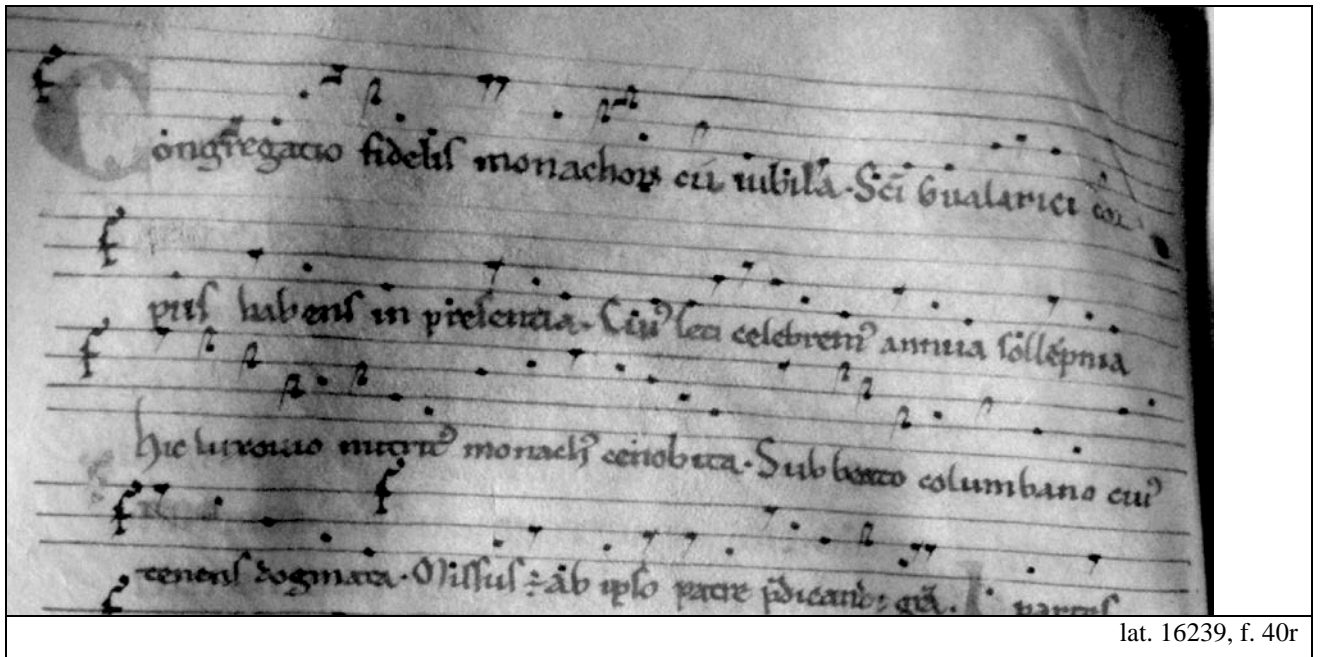 Congregatio fidelis monachoꝝ cū iubila. Sc̄i Gualarici cor
pus habens in presentia. Cui⁹ leti celebrem⁹ annua sollēpnia
hic luxouio nutrit⁹ monach⁹ cenobita. Sub beato columbano cui⁹
tenens dogmata. Missus ÷ ab ipso patre p̄dicand: grā. partes
lat. 16239, f. 40r